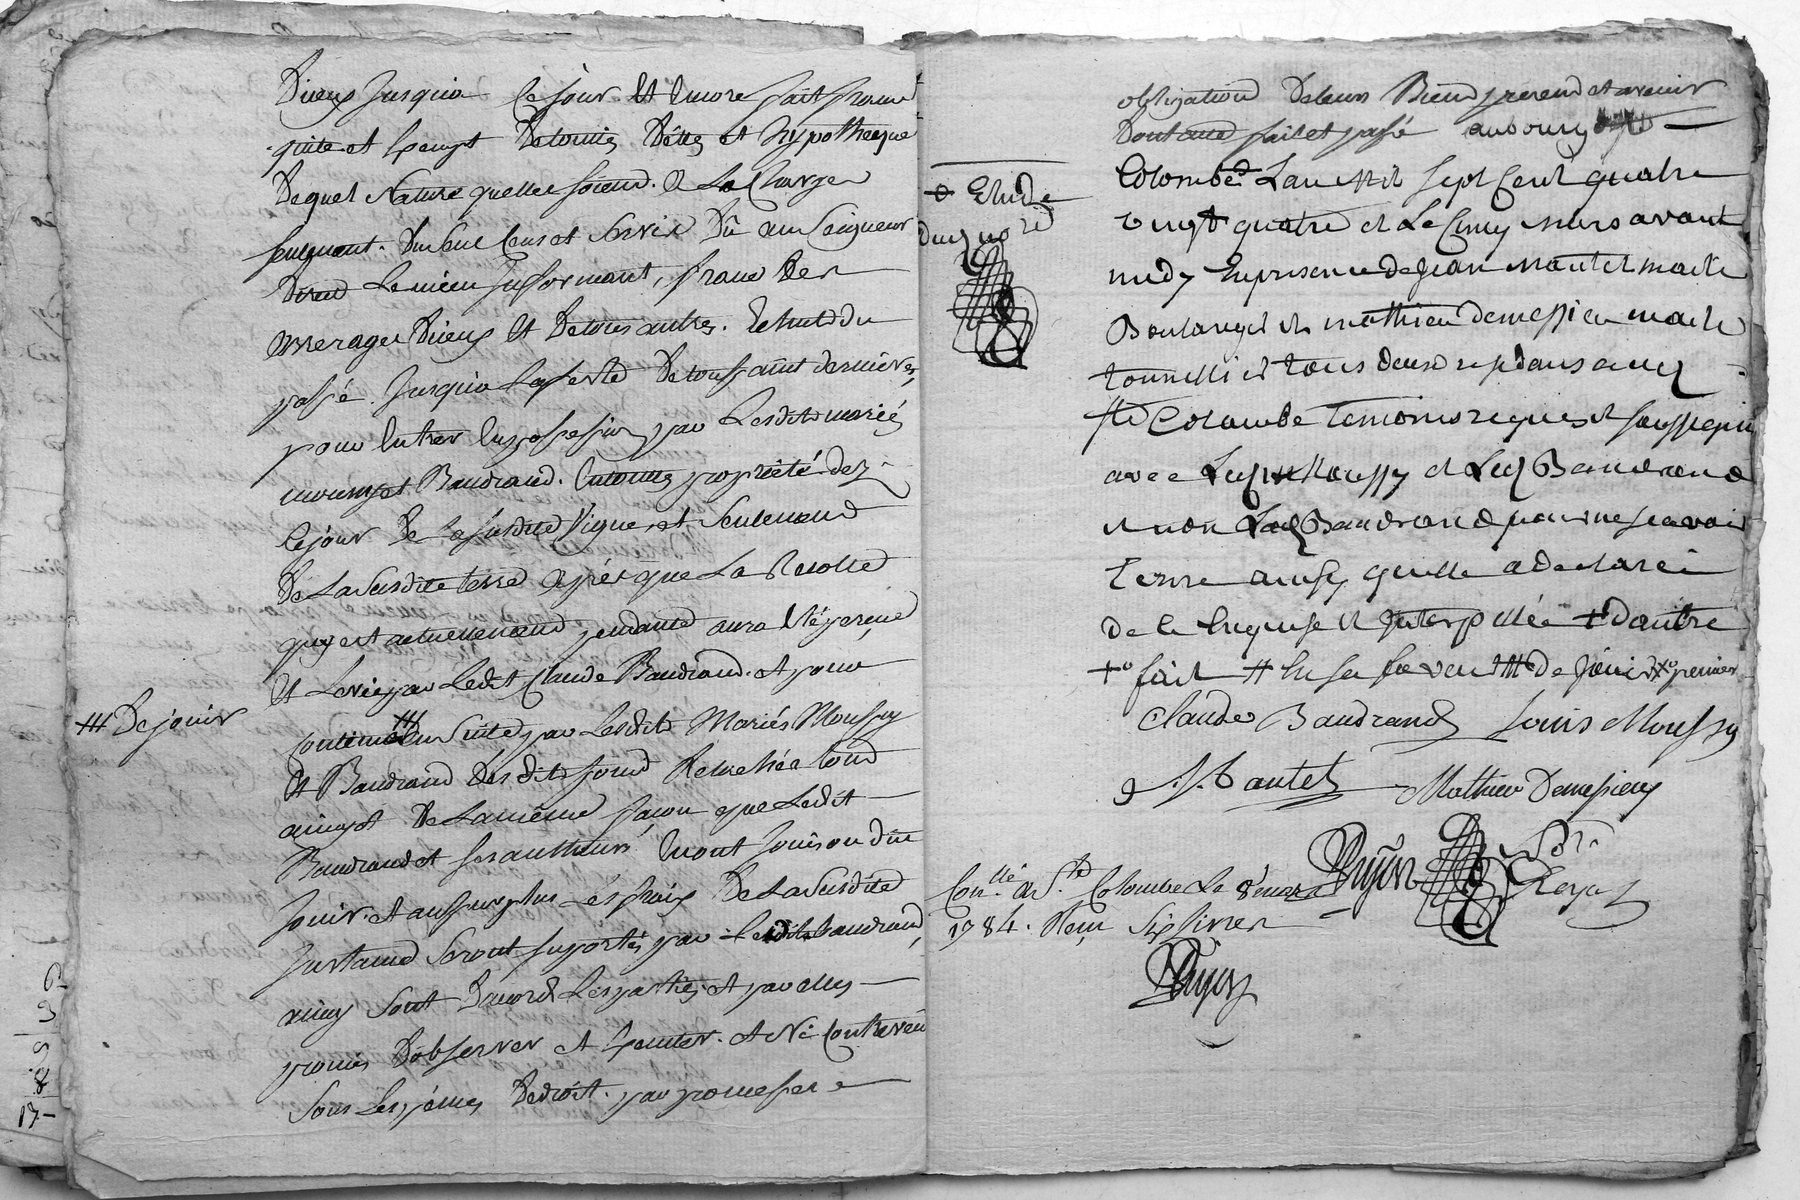 Vieux Jusqu'a Ce jour et Encore fait franc
quite et Exempt De toutes Dettes et hypotheque
De quel Nature quelles soient. a La Charge
seulement. Du seul Cens et servis Dû au Seigneur
Direct Le mieux Informant, franc Des
arrerages Vieux Et De tous autres. Echuts du
passé. Jusqu'a La feste De toussaint derniere,
pour Entrer En possession par Lesdits mariés
moussy et Baudrand. En toute proprieté dez
Ce jour De La susdite Vigne. et Seulement
De La Susdite terre Apres que La Recolte
quy est actuellement pendante aura Eté perçüe
Et Levée par Ledit Claude Baudrand. et pour
### De jouir
Continuer ### En Suite par Lesdits Mariés Moussy
Et Baudrand des dits fond Relachée tout
ainsy De La même façon que Ledit
Baudrand et ses autheurs En ont Jouis ou dut
Jouir. et au surplus Les frais De La Susdite
Seront suportés par Ledit baudrand
ainsy sont D'acord Les parties et par elles
promis D'observer et Executer. et Ni Contrevenir
Sous Les peines De droit. par promesse
obligation De leurs Biens present et avenir
Dont acte fait et passé au bourg
+ Etude
du no.re
Colombe L'an Mil sept Cent quatre
vingt quatre et Le Cinq mars avant
midy En presence de Jean Nantet maitre
Boulanger et mathieu demessieu maitre
tous deux residans audit
Ste Colombe temoins requis et soussignés
avec Led. Moussy et Led. Baudrand
et non Lad. Baudrand pour ne scavoir
Ecrire ainsy qu'elle a declaré
de ce Enquise et Interpellée + d'autre
+° fait # ### de jouir premier
Claude Baudrand Louis Moussy
J. Nantet Mathieu Demessieu
Con.lle à S.te Colombe Le 8 mars
1784. Reçu Six livres